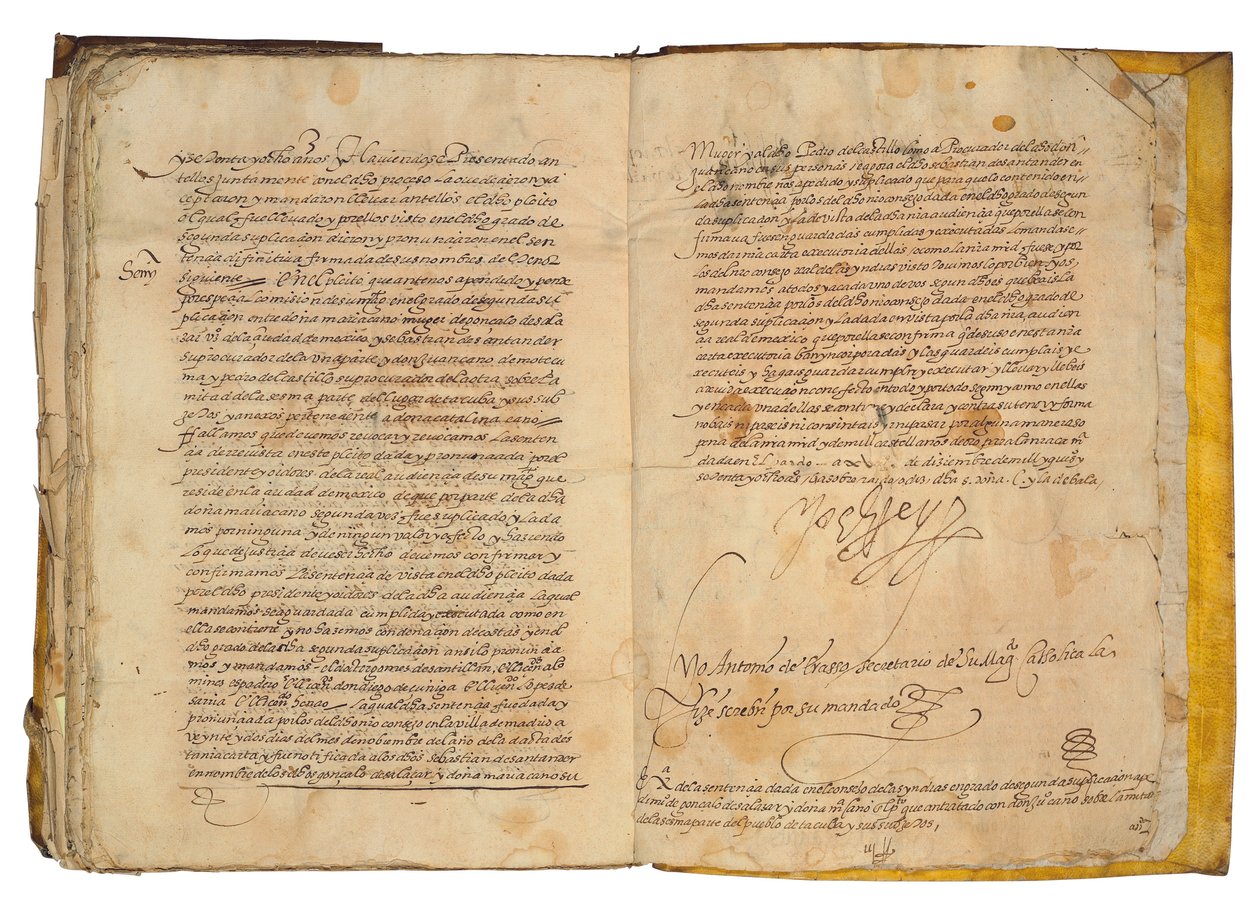 y sesenta y ocho años Haviendose Presentado an
te llos juntamente con el dho proceso Lo qvedieron y a
ceptaron y mandaron llevar ante llos el dho pleito
el qual fue llevado y por ellos visto en el dho grado de
segunda suplicaçion dieron y pronunçiaron en el sen
tençia difinitiva firmada de sus nombres del tenor
Sentª
siguiente En el pleito que ante nos a pendido y pende
por espeçial comision de su magt en el grado de segunda su
plicaçion entre doña maria cano muger de gonçalo de sala
zar vº de la çiudad de mexico y sebastian de santander
su procurador de la vna parte y don Juan cano de motecu
ma y pedro del castillo su procurador de la otra sobre la
mitad de la sesma parte del lugar de tacuba y sus sub
jetos y anexos perteneçiente a doña catalina cano
Fallamos que devemos revocar y revocamos La senten
çia de revista en este pleito dada y pronunçiada por el
presidente y oidores de la real audiençia de su magt que
reside en la çiudad de mexico de que por parte de la dha
doña maria cano segunda vez fue suplicado y La da
mos por ninguna y de ningun valor y efeto y haziendo
Lo que de justiçia deve ser hecho devemos confirmar y
confirmamos La sentençia de vista en el dho pleito dada
por el dho presidente y oidores de la dha audiençia La qual
mandamos sea guardada cumplida y executada como en
ella se contiene y no hazemos condenaçion de costas y en el
dho grado de la dha segunda suplicaçion ansi lo pronunçia
mos y mandamos el doctor gomez de santillan, el liçendº alo
mines espadero el liçendº don diego de çuniga el liçendº Lopez de
saria el liçendº henao La qual dha sentençia fue dada y
pronunçiada por los del dho nro consejo en la villa de madrid a
veynte y dos dias del mes de nobiembre del año de la data des
ta nia carta y fue notificada a los dhos sebastian de santander
en nombre de los dhos gonçalo de salazar y doña maria cano su
Muger y al dho Pedro del castillo como a Procurador del dho don
Juan cano en sus personas E agora el dho sebastian de santander en
el dho nombre nos a pedido y suplicado que para que lo contenido en
La dha sentençia por los del dho nro consejo dada en el dho grado de segun
da suplicaçion y La de vista de la dha nra audiençia que por ella se con
firmava fuesen guardadas cumplidas y executadas Le mandase
mos dar nra carta executoria dellas o como La nra mrd fuese y por
Los del nro consejo real de las yndias visto tovimoslo por bien y os
mandamos a todos y a cada vno de vos segun dho es que veais La
dha sentençia por los del dho nro consejo dada en el dho grado de
segunda suplicaçion y La dada en vista por La dha nra audien
çia real de mexico que por ella se confirma q de suso en esta nra
carta executoria ban yncorporadas y Las guardeis cumplais y e
xecuteis y hagais guardar cumplir y executar y llevar y lleveis
a devida execuçion con efecto en todo y por todo segun y como en ellas
y en cada vna dellas se contiene y declara y contra su tenor y forma
no vais ni paseis ni consintais yr ni pasar por alguna manera so
pena de la nra mrd y de mill castellanos de oro para La nra camª
dada en El pardo a de diziembre de mill y quisº y
sesenta y ocho aºs
Yo el Rey
Yo Antonio de Erasso secretario de Su Magt Catholica la
fize screbir por su mandado
de la sentençia dada en el consejo de las yndias en grado de segunda suplicaçion a pe
dimiº de gonçalo de salazar y doña mª cano el pleyto que an tratado con don juº cano sobre la mitad
de la sesma parte del pueblo de tacuba y sus subjetos,